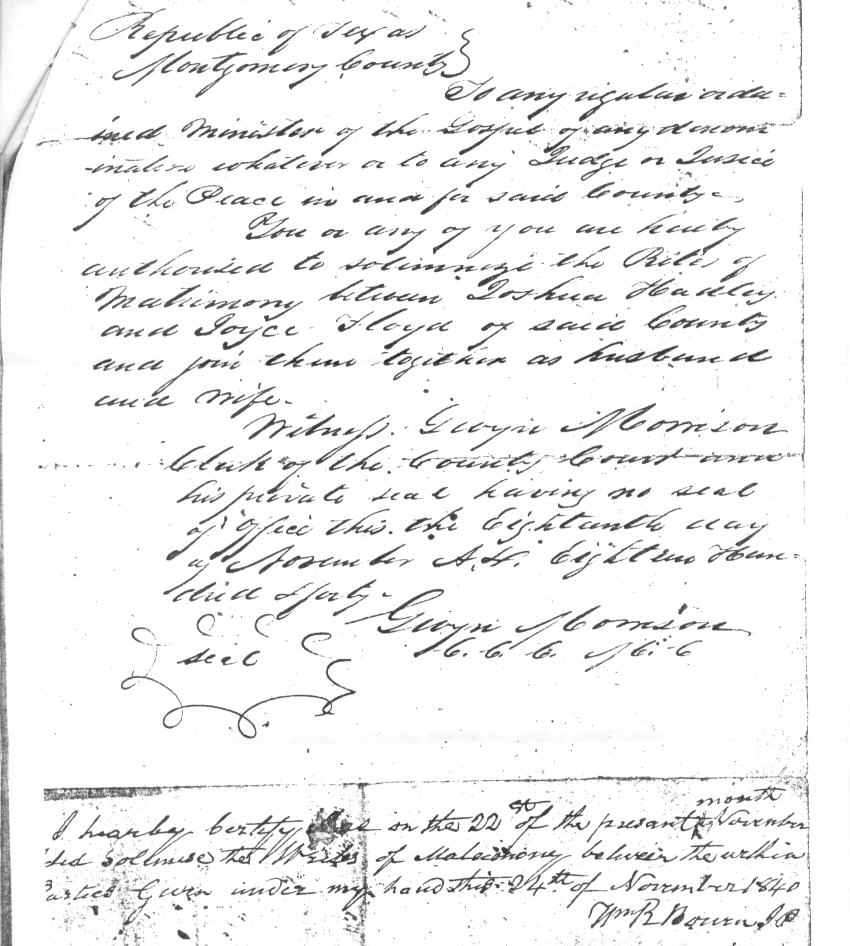 Republic of Texas
Montgomery County
To any regular orda-
ined Minister of the Gospel of any denom
inations whatever or to any Judge or Jusice
of the Peace in and for said County-
You or any of you are hereby
authorised to solemnize the Rites of
Matrimony between Joshua Hadley
and Joyce Floyd of said County
and join them together as husband
and wife-
Witness. Gwyn Morrison
Clerk of the County Court and
his private seal having no seal
of office this the Eighteenth day
of November A.D. Eighteen Hun-
dred & forty-
Gwyn Morrison
C. C. C. M. C
seal
month
I hearby Certify on the 22 st of the presant November
did Solemise the of between the within
parties Given under my hand this 24th of November 1840
Wm R Bouen J P